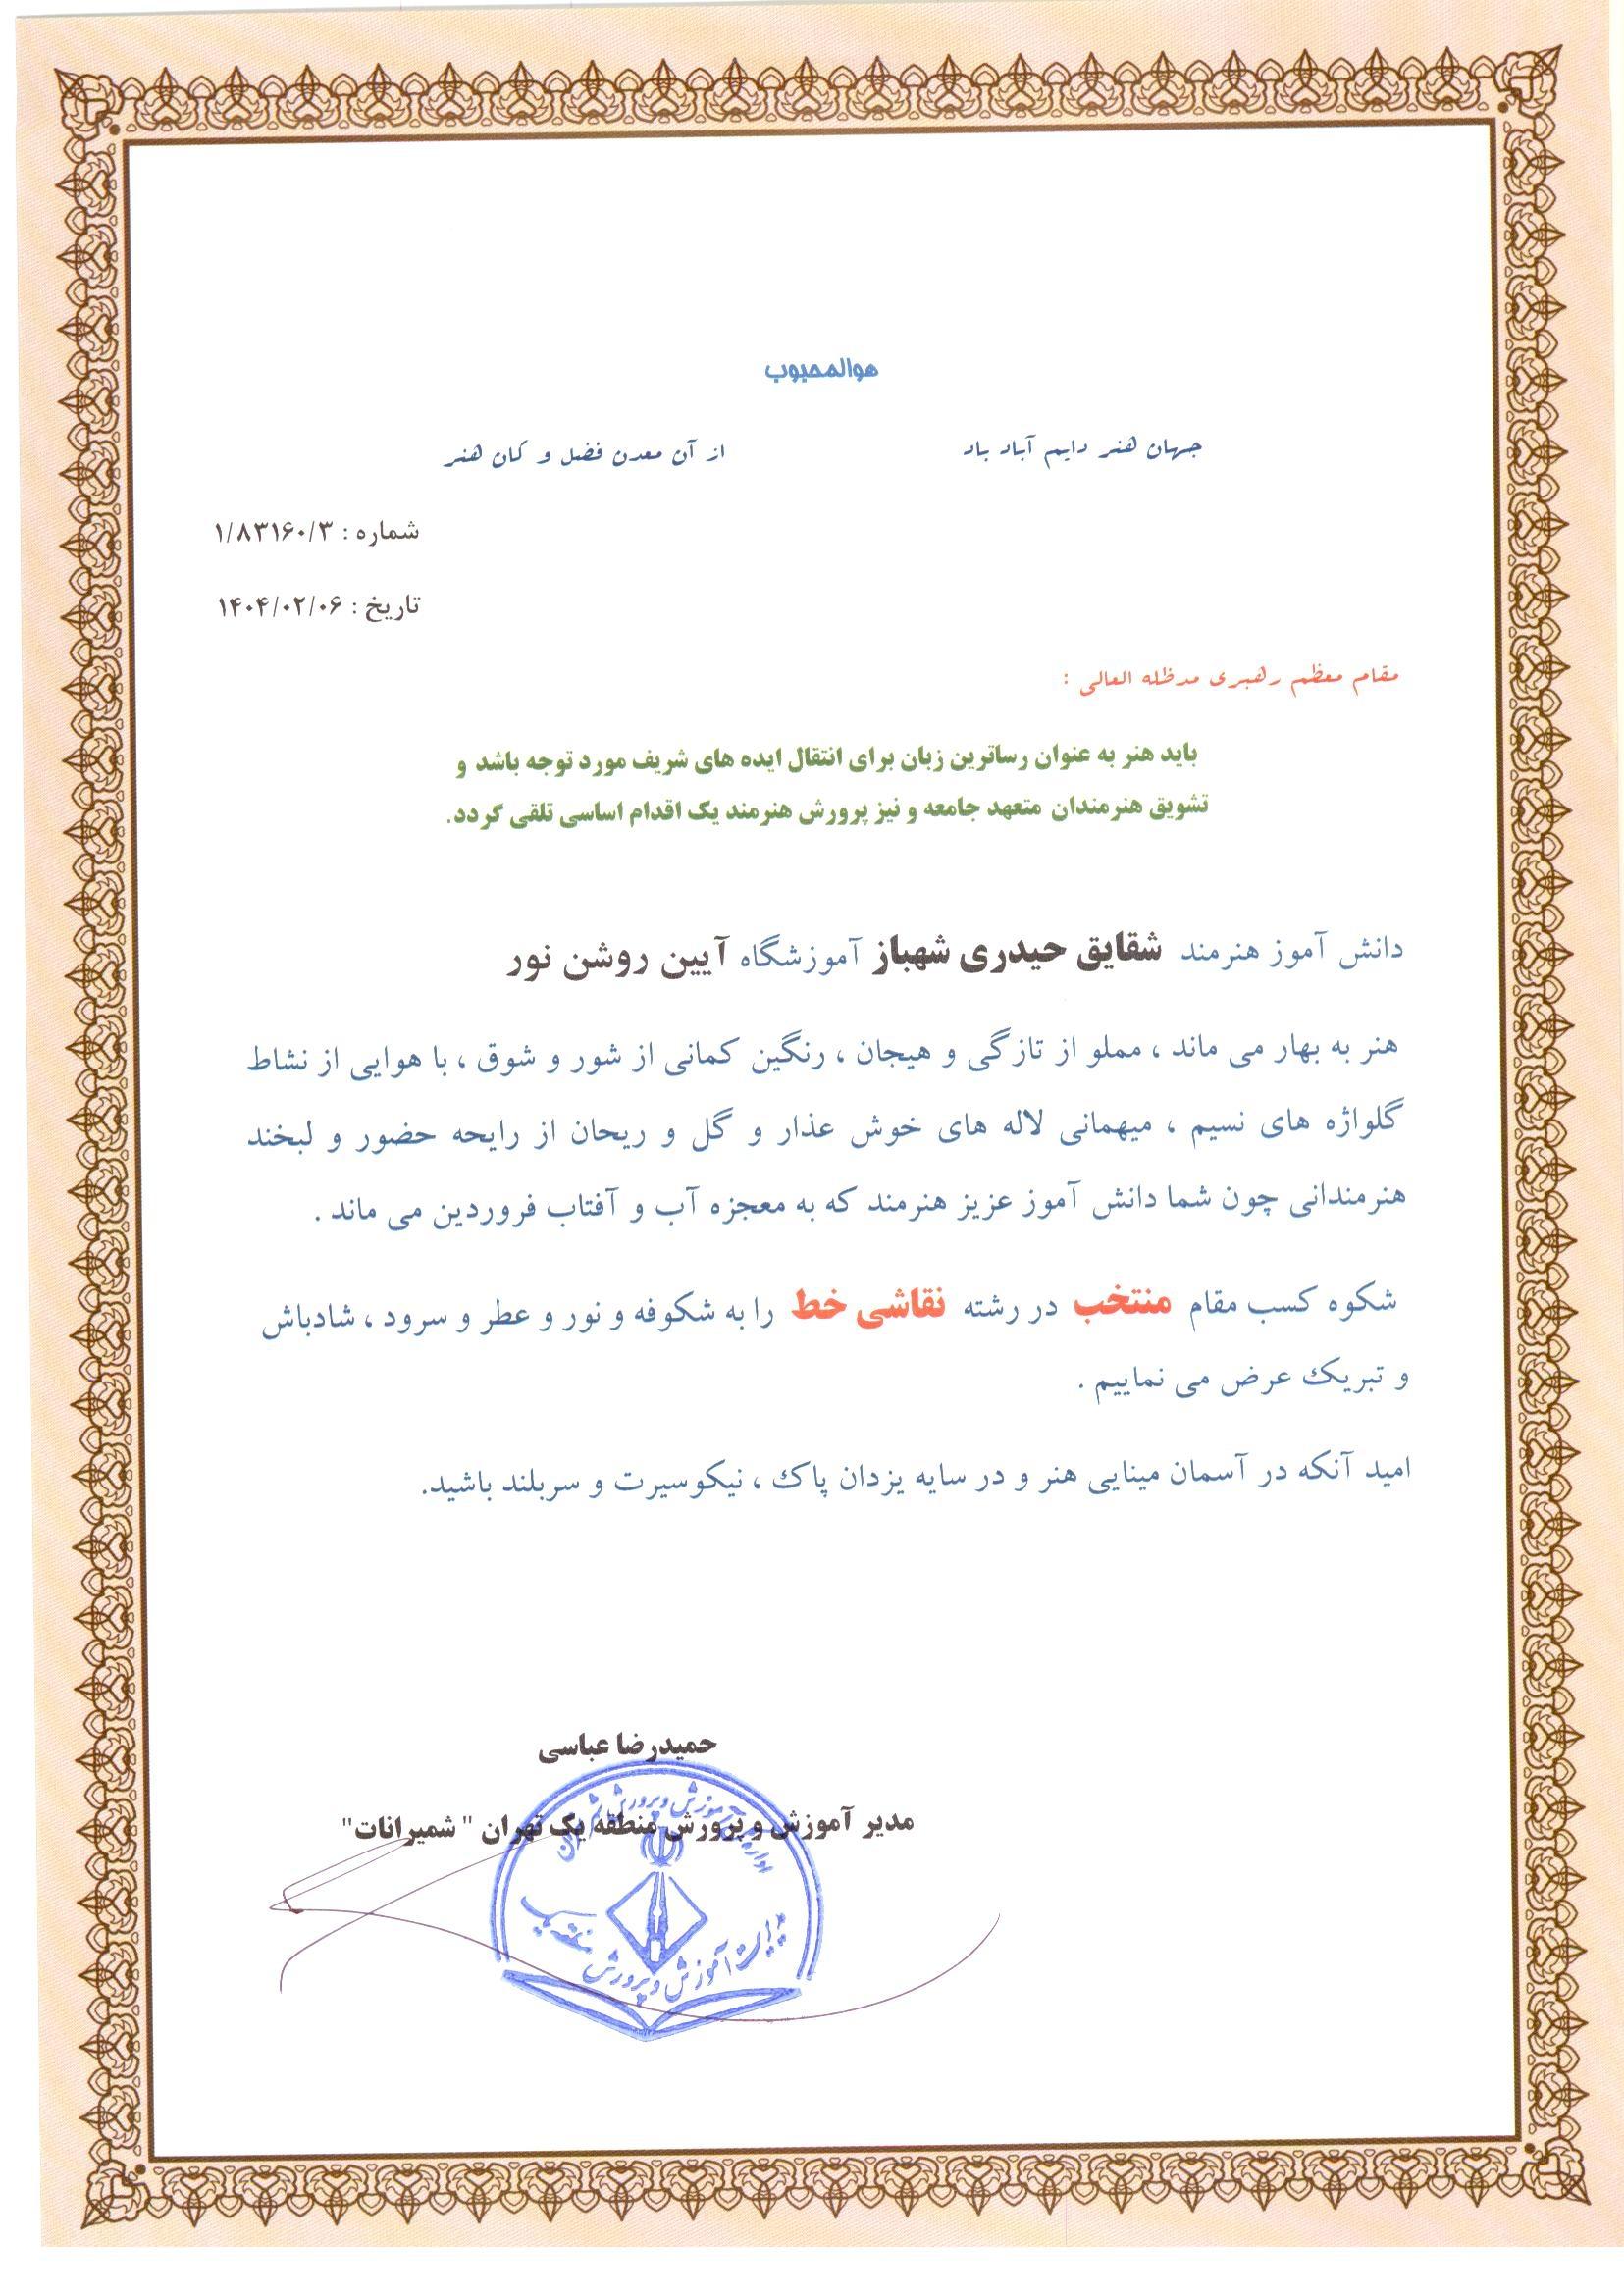 هوالمحبوب
جهان هنر دایم آباد باد از آن معدن فضل و کان هنر
شماره : ۱/۸۳۱۶۰/۳
تاریخ : ۱۴۰۴/۰۲/۰۶
مقام معظم رهبری مدظله العالی :
باید هنر به عنوان رساترین زبان برای انتقال ایده های شریف مورد توجه باشد و
تشویق هنرمندان متعهد جامعه و نیز پرورش هنرمند یک اقدام اساسی تلقی گردد.
دانش آموز هنرمند شقایق حیدری شهباز آموزشگاه آیین روشن نور
هنر به بهار می ماند ، مملو از تازگی و هیجان ، رنگین کمانی از شور و شوق ، با هوایی از نشاط
گلواژه های نسیم ، میهمانی لاله های خوش عذار و گل و ریحان از رایحه حضور و لبخند
هنرمندانی چون شما دانش آموز عزیز هنرمند که به معجزه آب و آفتاب فروردین می ماند .
شکوه کسب مقام منتخب در رشته نقاشی خط را به شکوفه و نور و عطر و سرود ، شادباش
و تبریک عرض می نماییم .
امید آنکه در آسمان مینایی هنر و در سایه یزدان پاک ، نیکوسیرت و سربلند باشید.
حمیدرضا عباسی
مدیر آموزش و پرورش منطقه یک تهران " شمیرانات"
اداره آموزش و پرورش شهر تهران
مدیریت آموزش و پرورش منطقه یک